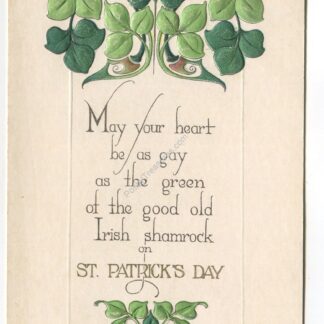 May your heart
be as gay
as the green
of the good old
Irish shamrock
on
ST. PATRICK'S DAY